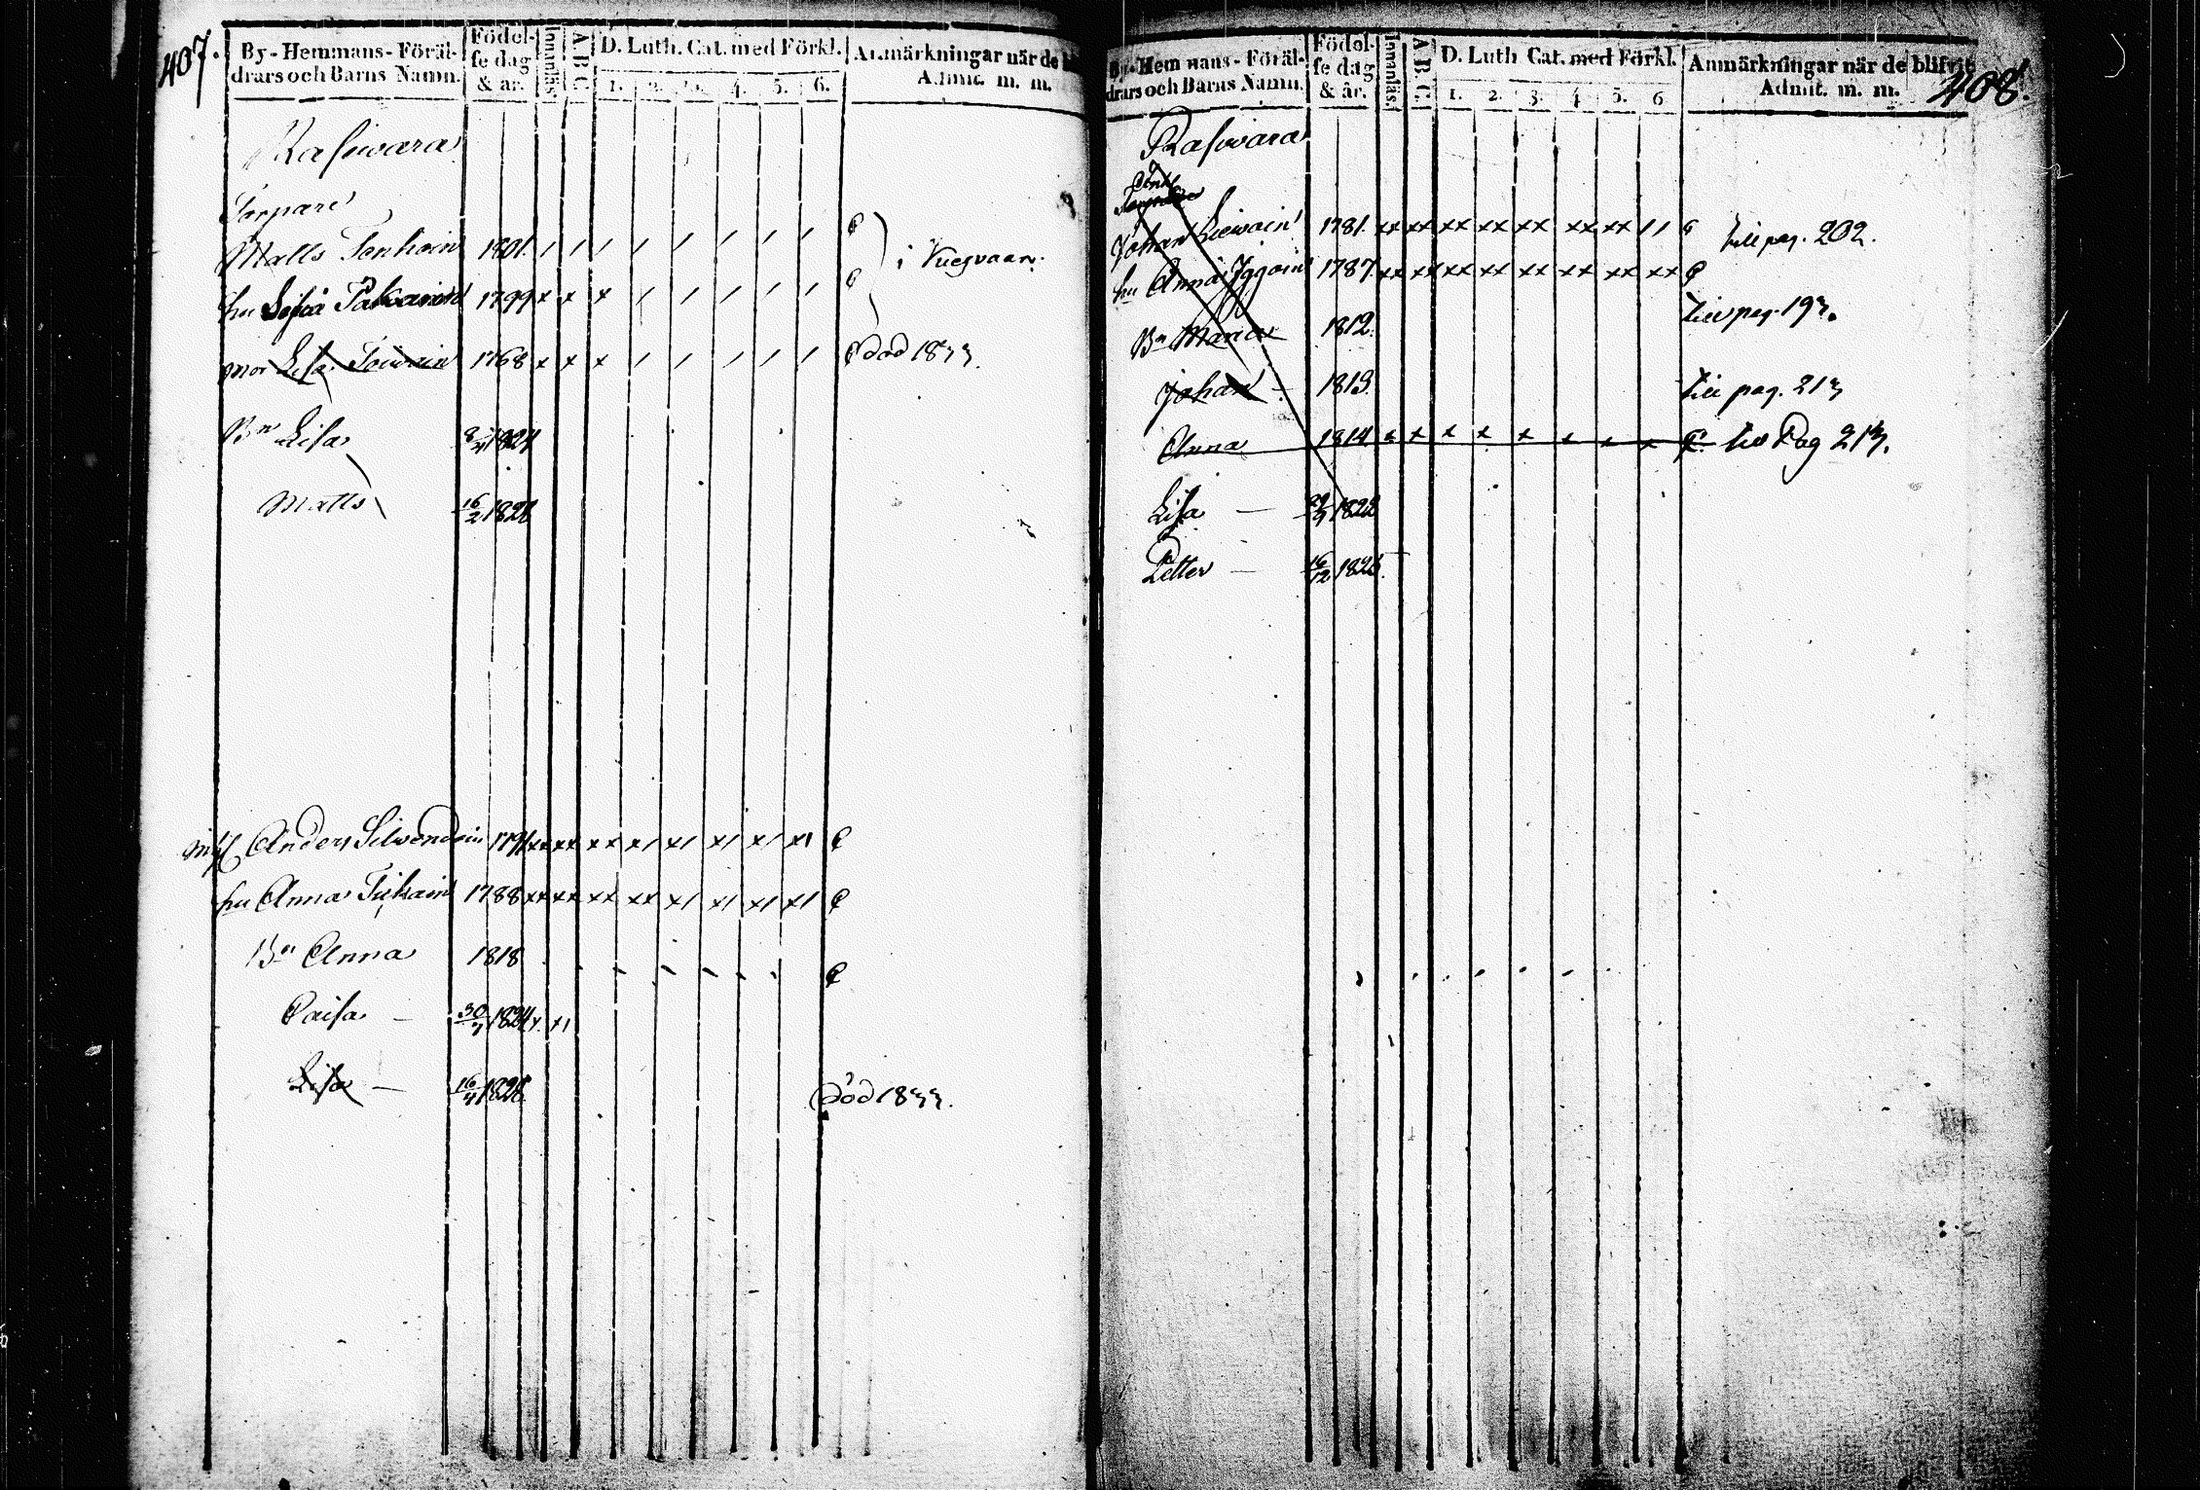 407.
By-Hemmans-Föräl-
drars och Barns Namn.
Födel-
se dag
& år.
Innanläs.
A.B.C.
D. Luth. Cat. med Förkl.
1. 2. 3. 4. 5. 6.
Anmärkningar när de bl
Admit. m. m.
Rasiwara
Torpare
Matts Tenhoin 1801. / / / / / / / /
hu 1799 x x x / / / / /
i Kuesvaara
mor Lisa Toiwain 1768 x x x / / / / / död 1833.
Bn Lisa 1824
Matts 16/2 1828
Anders Silwendoin 1791 xx xx xx x/ x/ x/ x/ x/
hu Anna Tiikain 1788 xx xx xx xx x/ x/ x/ x/
Bn Anna 1818
Caisa — 30/7 1824 x x/
Lisa — 16/4 1828 död 1833.
By-Hemmans-Föräl-
drars och Barns Namn.
Födel-
se dag
& år.
Innanläs.
A.B.C.
D. Luth Cat. med Förkl.
1. 2. 3. 4. 5. 6
Anmärkningar när de blifvit
Admit. m. m.
408.
Rasiwara
Enkl
Johan Liewoin 1781. xx xx xx xx xx xx xx // till pag. 202.
hu Anna Iggoin 1787 xx xx xx xx xx xx xx xx
Bn Maria 1812. till pag. 193.
Johan — 1813. till pag. 213
Anna 1814 x x x x x x x x till Pag 213.
Lisa — 1822
Petter — 16/12 1826.